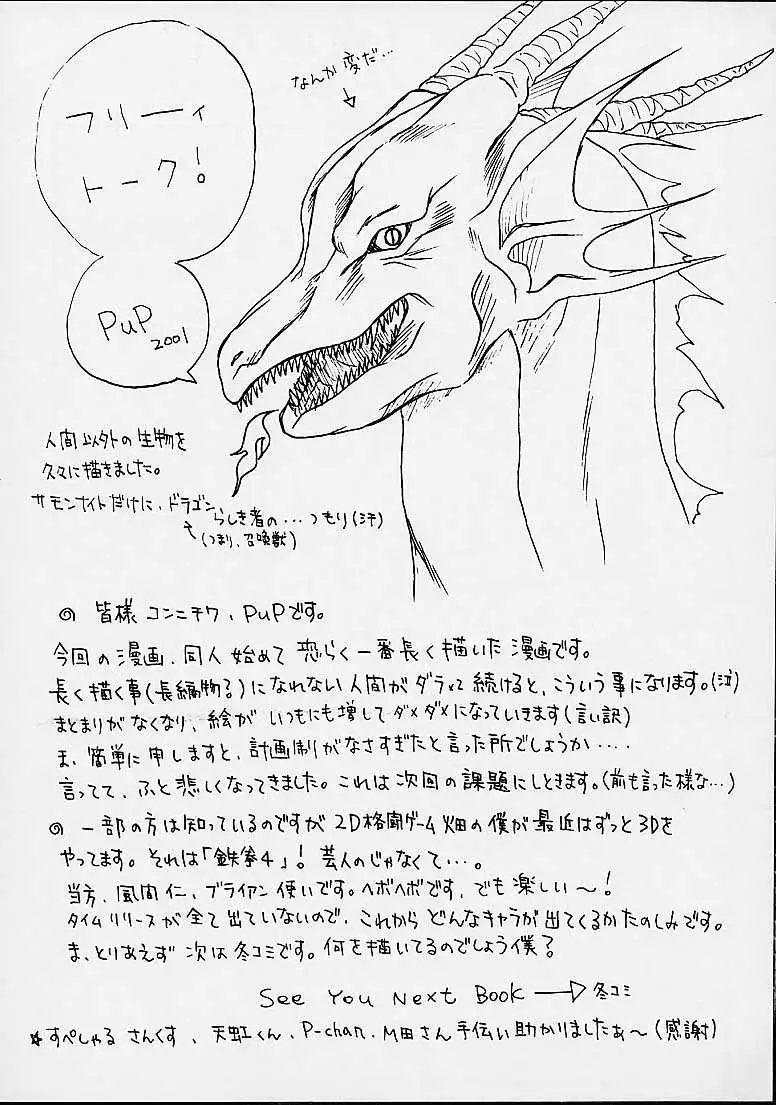 フリーィ
トーク!
PuP
2001
なんか変だ…
人間以外の生物を
久々に描きました。
サモンナイトだけに、ドラゴン
らしき者の…つもり(汗)
(つまり、召喚獣)
皆様コンニチワ、PuPです。
今回の漫画、同人始めて恐らく一番長く描いた漫画です。
長く描く事(長編物?)になれない人間がダラって続けると、こういう事になります。(泣)
まとまりがなくなり、絵がいつもにも増してダメダメになっていきます(言い訳)
ま、簡単に申しますと、計画制がなさすぎたと言った所でしょうか‥‥
言ってて、ふと悲しくなってきました。これは次回の課題にしときます。(前も言った様な…)
一部の方は知っているのですが2D格闘ゲーム畑の僕が最近はずっと3Dを
やってます。それは「鉄拳4」!芸人のじゃなくて…。
当方、風間仁、ブライアン使いです。ヘボヘボです、でも楽しい〜!
タイムリリースが全て出ていないので、これからどんなキャラが出てくるかたのしみです。
ま、とりあえず次は冬コミです。何を描いてるのでしょう僕?
See You Next Book → 冬コミ
☆すぺしゃるさんくす、天虹くん、P-chan、M田さん手伝い助かりましたぁ〜(感謝)